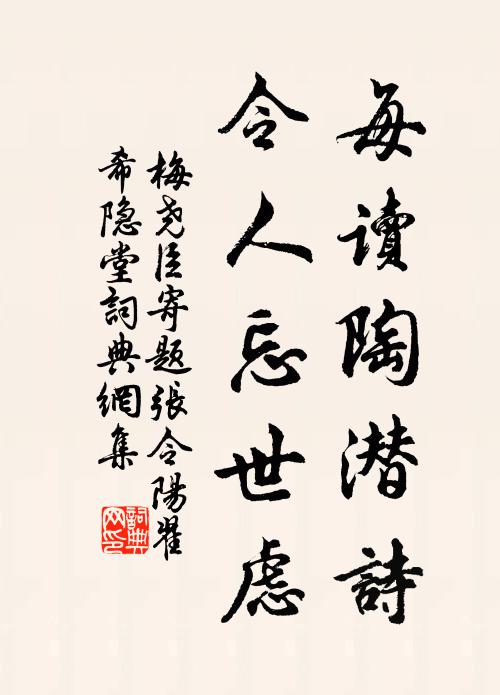 每讀陶潜詩
令人忘世慮
梅尧臣寄題張令陽翟
希隐堂詞典網集
詞典网印